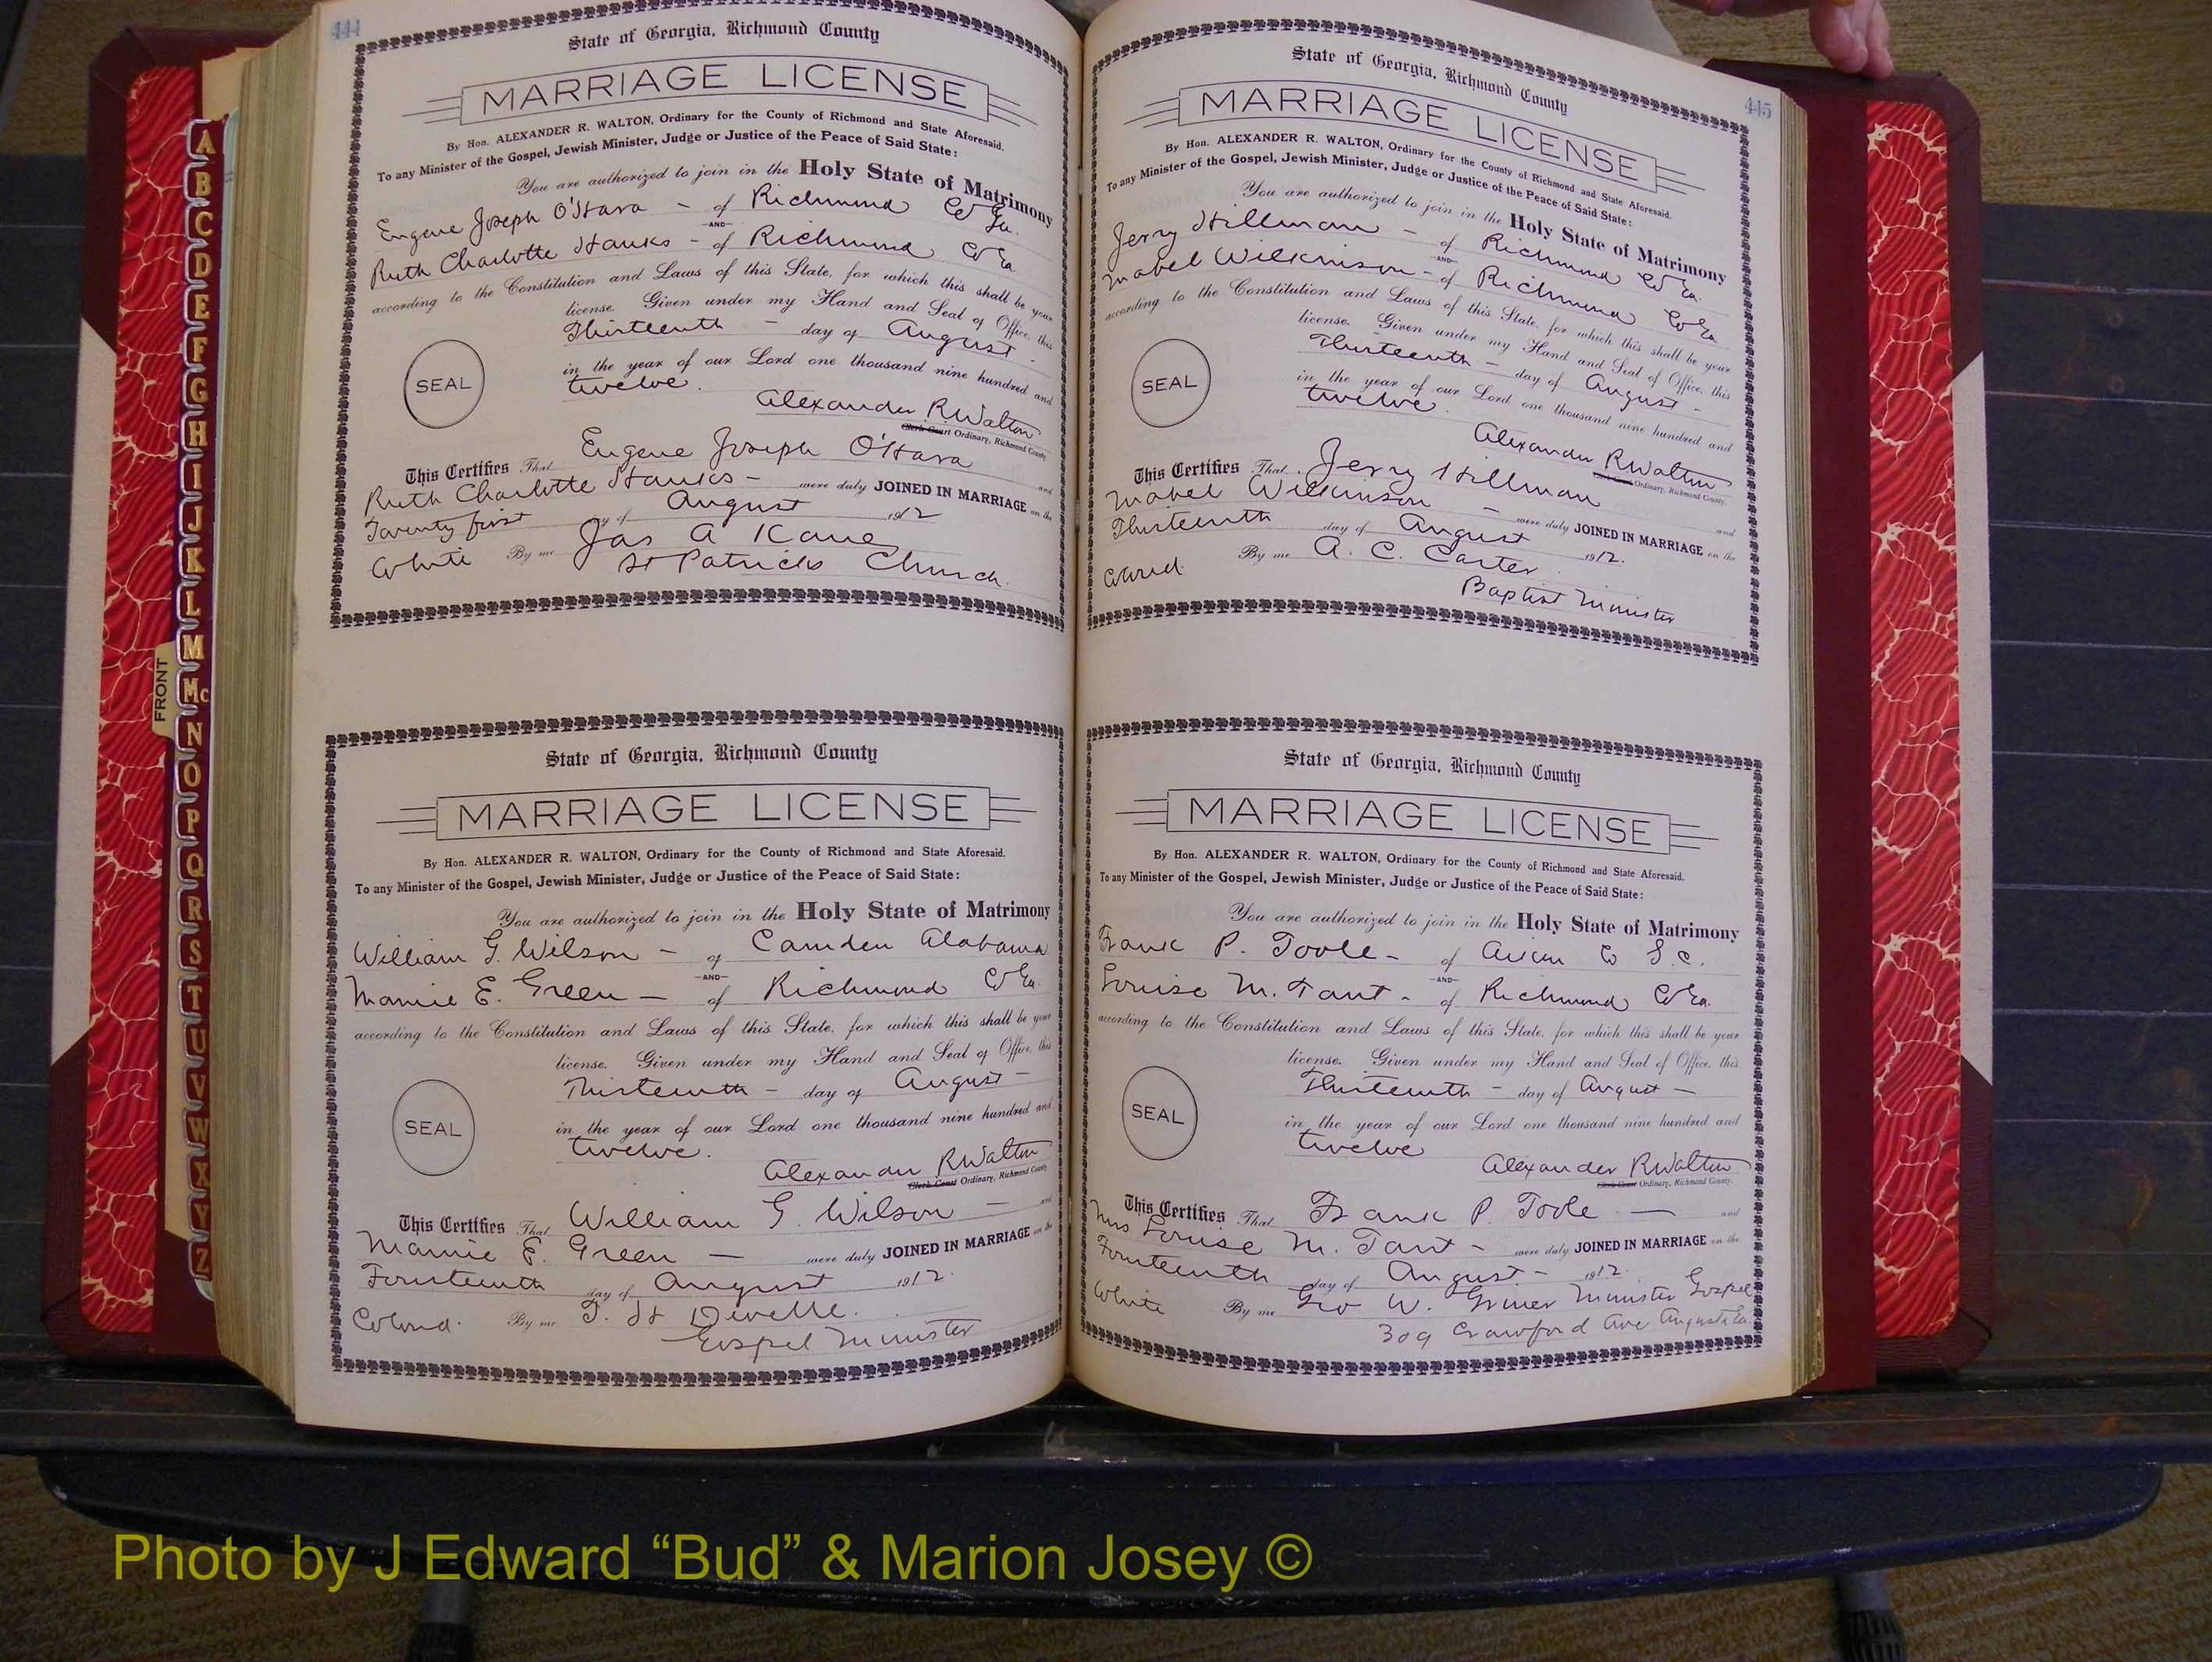 444
State of Georgia, Richmond County
MARRIAGE LICENSE
By Hon. ALEXANDER R. WALTON, Ordinary for the County of Richmond and State Aforesaid.
To any Minister of the Gospel, Jewish Minister, Judge or Justice of the Peace of Said State:
You are authorized to join in the Holy State of Matrimony
Eugene Joseph O'Hara - of Richmond Co Ga.
AND
Ruth Charlotte Hanks - of Richmond Co Ga
according to the Constitution and Laws of this State, for which this shall be your
license. Given under my Hand and Seal of Office, this
Thirteenth - day of August -
in the year of our Lord one thousand nine hundred and
twelve.
SEAL
Alexander R Walton
Clerk Court Ordinary, Richmond County
This Certifies That Eugene Joseph O'Hara and
Ruth Charlotte Hanks - were duly JOINED IN MARRIAGE on the
Twenty first day of August 1912
White By me Jas A Kane
St Patricks Church.
State of Georgia, Richmond County
MARRIAGE LICENSE
By Hon. ALEXANDER R. WALTON, Ordinary for the County of Richmond and State Aforesaid.
To any Minister of the Gospel, Jewish Minister, Judge or Justice of the Peace of Said State:
You are authorized to join in the Holy State of Matrimony
William G. Wilson - of Camden Alabama
AND
Mamie E. Green - of Richmond Co Ga.
according to the Constitution and Laws of this State, for which this shall be your
license. Given under my Hand and Seal of Office, this
Thirteenth - day of August -
in the year of our Lord one thousand nine hundred and
twelve.
SEAL
Alexander R Walton
Clerk Court Ordinary, Richmond County
This Certifies That William G. Wilson - and
Mamie E. Green - were duly JOINED IN MARRIAGE on the
Fourteenth day of August 1912.
Colored. By me T. H
Gospel Minister
445
State of Georgia, Richmond County
MARRIAGE LICENSE
By Hon. ALEXANDER R. WALTON, Ordinary for the County of Richmond and State Aforesaid.
To any Minister of the Gospel, Jewish Minister, Judge or Justice of the Peace of Said State:
You are authorized to join in the Holy State of Matrimony
Jerry Hillman - of Richmond Co Ga.
AND
Mabel Wilkinson - of Richmond Co Ga
according to the Constitution and Laws of this State, for which this shall be your
license. Given under my Hand and Seal of Office, this
Thirteenth - day of August -
in the year of our Lord one thousand nine hundred and
twelve.
SEAL
Alexander R Walton
Clerk Court Ordinary, Richmond County.
This Certifies That Jerry Hillman and
Mabel Wilkinson - were duly JOINED IN MARRIAGE on the
Thirteenth day of August 1912.
Colored. By me A. C. Carter.
Baptist Minister
State of Georgia, Richmond County
MARRIAGE LICENSE
By Hon. ALEXANDER R. WALTON, Ordinary for the County of Richmond and State Aforesaid.
To any Minister of the Gospel, Jewish Minister, Judge or Justice of the Peace of Said State:
You are authorized to join in the Holy State of Matrimony
Frank P. Toole - of Aiken Co S.C.
AND
Louise M. Tant - of Richmond Co Ga.
according to the Constitution and Laws of this State, for which this shall be your
license. Given under my Hand and Seal of Office, this
Thirteenth - day of August -
in the year of our Lord one thousand nine hundred and
twelve
SEAL
Alexander R Walton
Clerk Court Ordinary, Richmond County.
This Certifies That Frank P. Toole - and
Mrs Louise M. Tant - were duly JOINED IN MARRIAGE on the
Fourteenth day of August - 1912.
White By me Geo W. Minister Gospel
309 Crawford Ave Augusta Ga.
A
B
C
D
E
F
G
H
I
J
K
L
M
Mc
N
O
P
Q
R
S
T
U
V
W
X
Y
Z
FRONT
Photo by J Edward “Bud” & Marion Josey ©